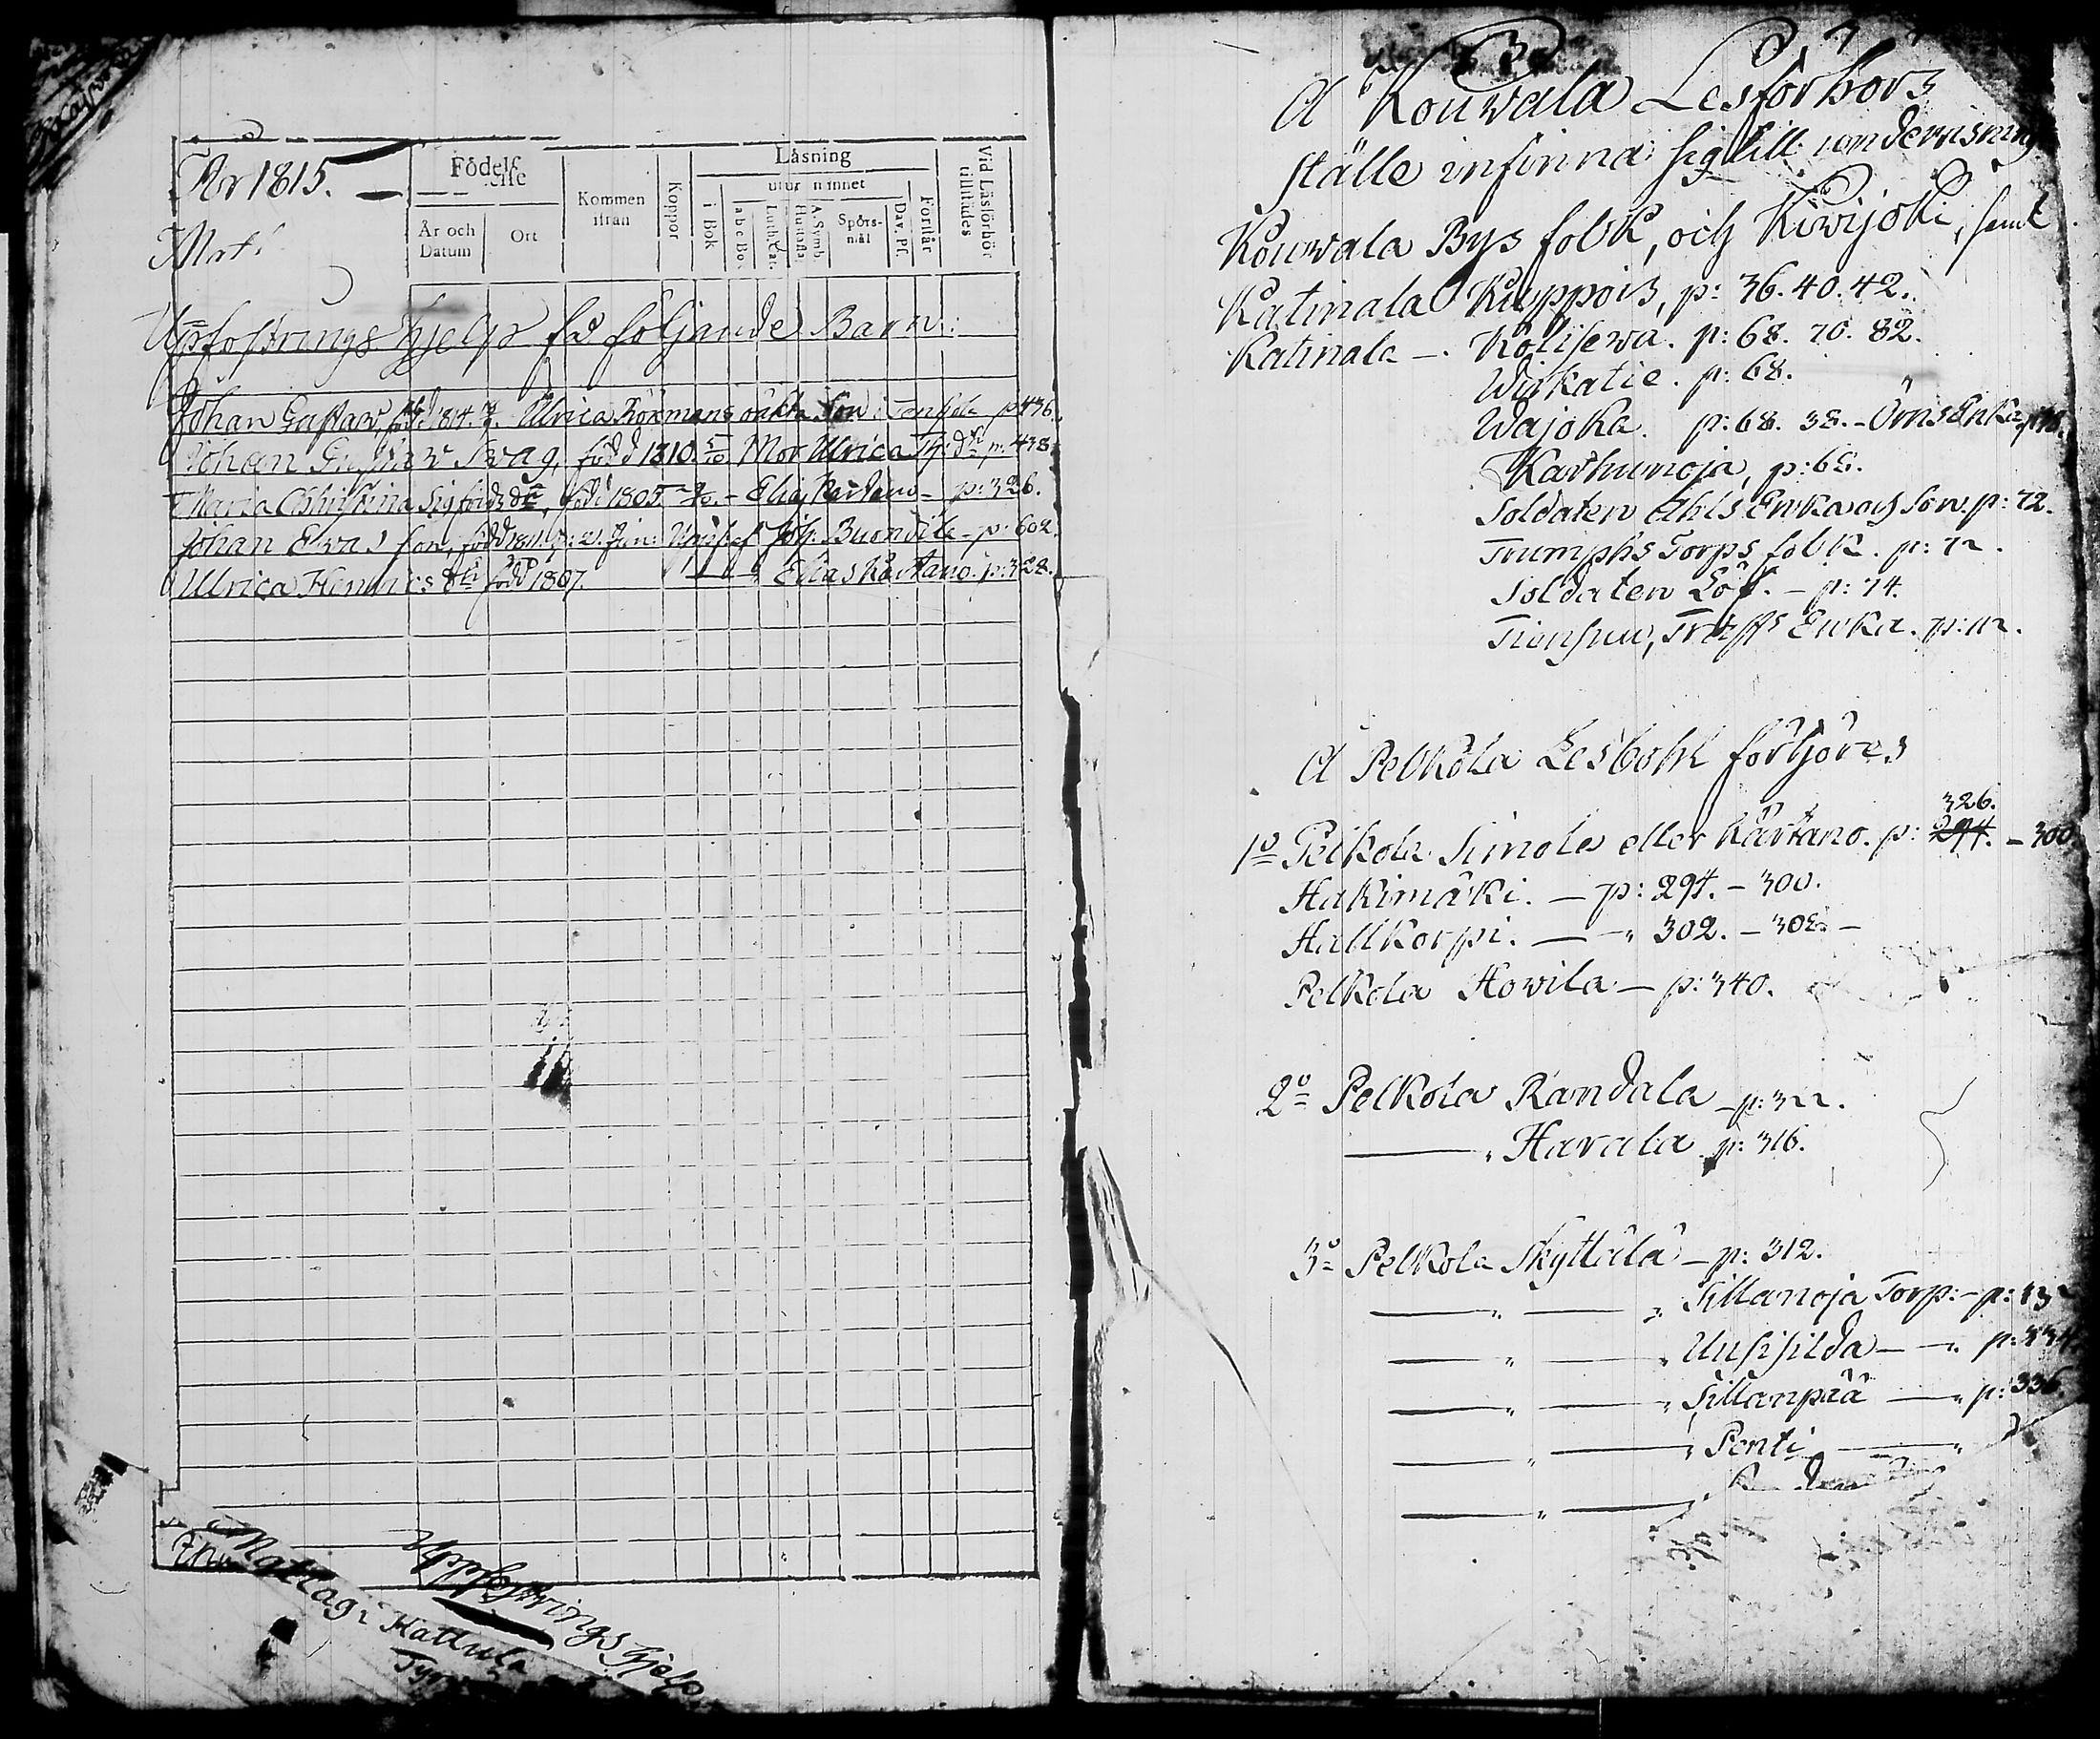 År 1815.
Födelse
År och Datum
Ort
Kommen ifrån
Koppor
Läsning
utur minnet
i Bok
a b c Bok
Luth. Cat.
Hustafla
A. Symb.
Spörsmål
Dav. Ps.
Förstår
Vid Läsförhör tilltädes
Upfostrings hjelp få följande Barn:
Johan Gustav, född 1814. Ulrica Törmans oäkta Son i p: 436.
Johan Gustav Svag, född 1810 5/10 Mor Ulrica Th: dr p: 438.
Maria Christina Sigfrids dr, född 1805. – Elias Kartano – p: 326.
Johan Evas son, född Joh: Buondila – p: 602.
Ulrica Henrics dr född 1807. Elias Kartano. p: 328.
Mattag: Hattula
Uppfostrings hjelp
A Kouwala Lesförhörs
ställe infinna sig till undervisning
Kouwala Bys folk, och Kiwijoki, samt
Katinala Kuppois, p: 36. 40. 42.
Katinala –. Kolisewa. p: 68. 70. 82.
Wirkatie. p: 68.
Wajoka. p: 68. 38. – Örns Enka,
Karhunoja, p: 68.
Soldaten Ahls Enka och Son. p: 72.
Trumphs Torps folk. p: 72.
Soldaten Löf. – p: 74.
Tiensuu, Enka. p: 112.
A Pelkola Lesbohl förhöres
326.
1o Pelkola Simola eller Kartano. p: 294. – 300
Hakimäki. – p: 294. – 300.
Hallkorpi. — " 302. – 308. –
Pelkola Howila – p: 340.
2o Pelkola Randala – p: 322.
—— " Harala p: 316.
3o Pelkola Skyttälä – p: 312.
—— " —— " Sillanoja Torp: – p: 132
—— " —— " Uusisilda — " p: 334.
—— " —— " Sillanpää — " p: 336.
—— " —— " Penti — "